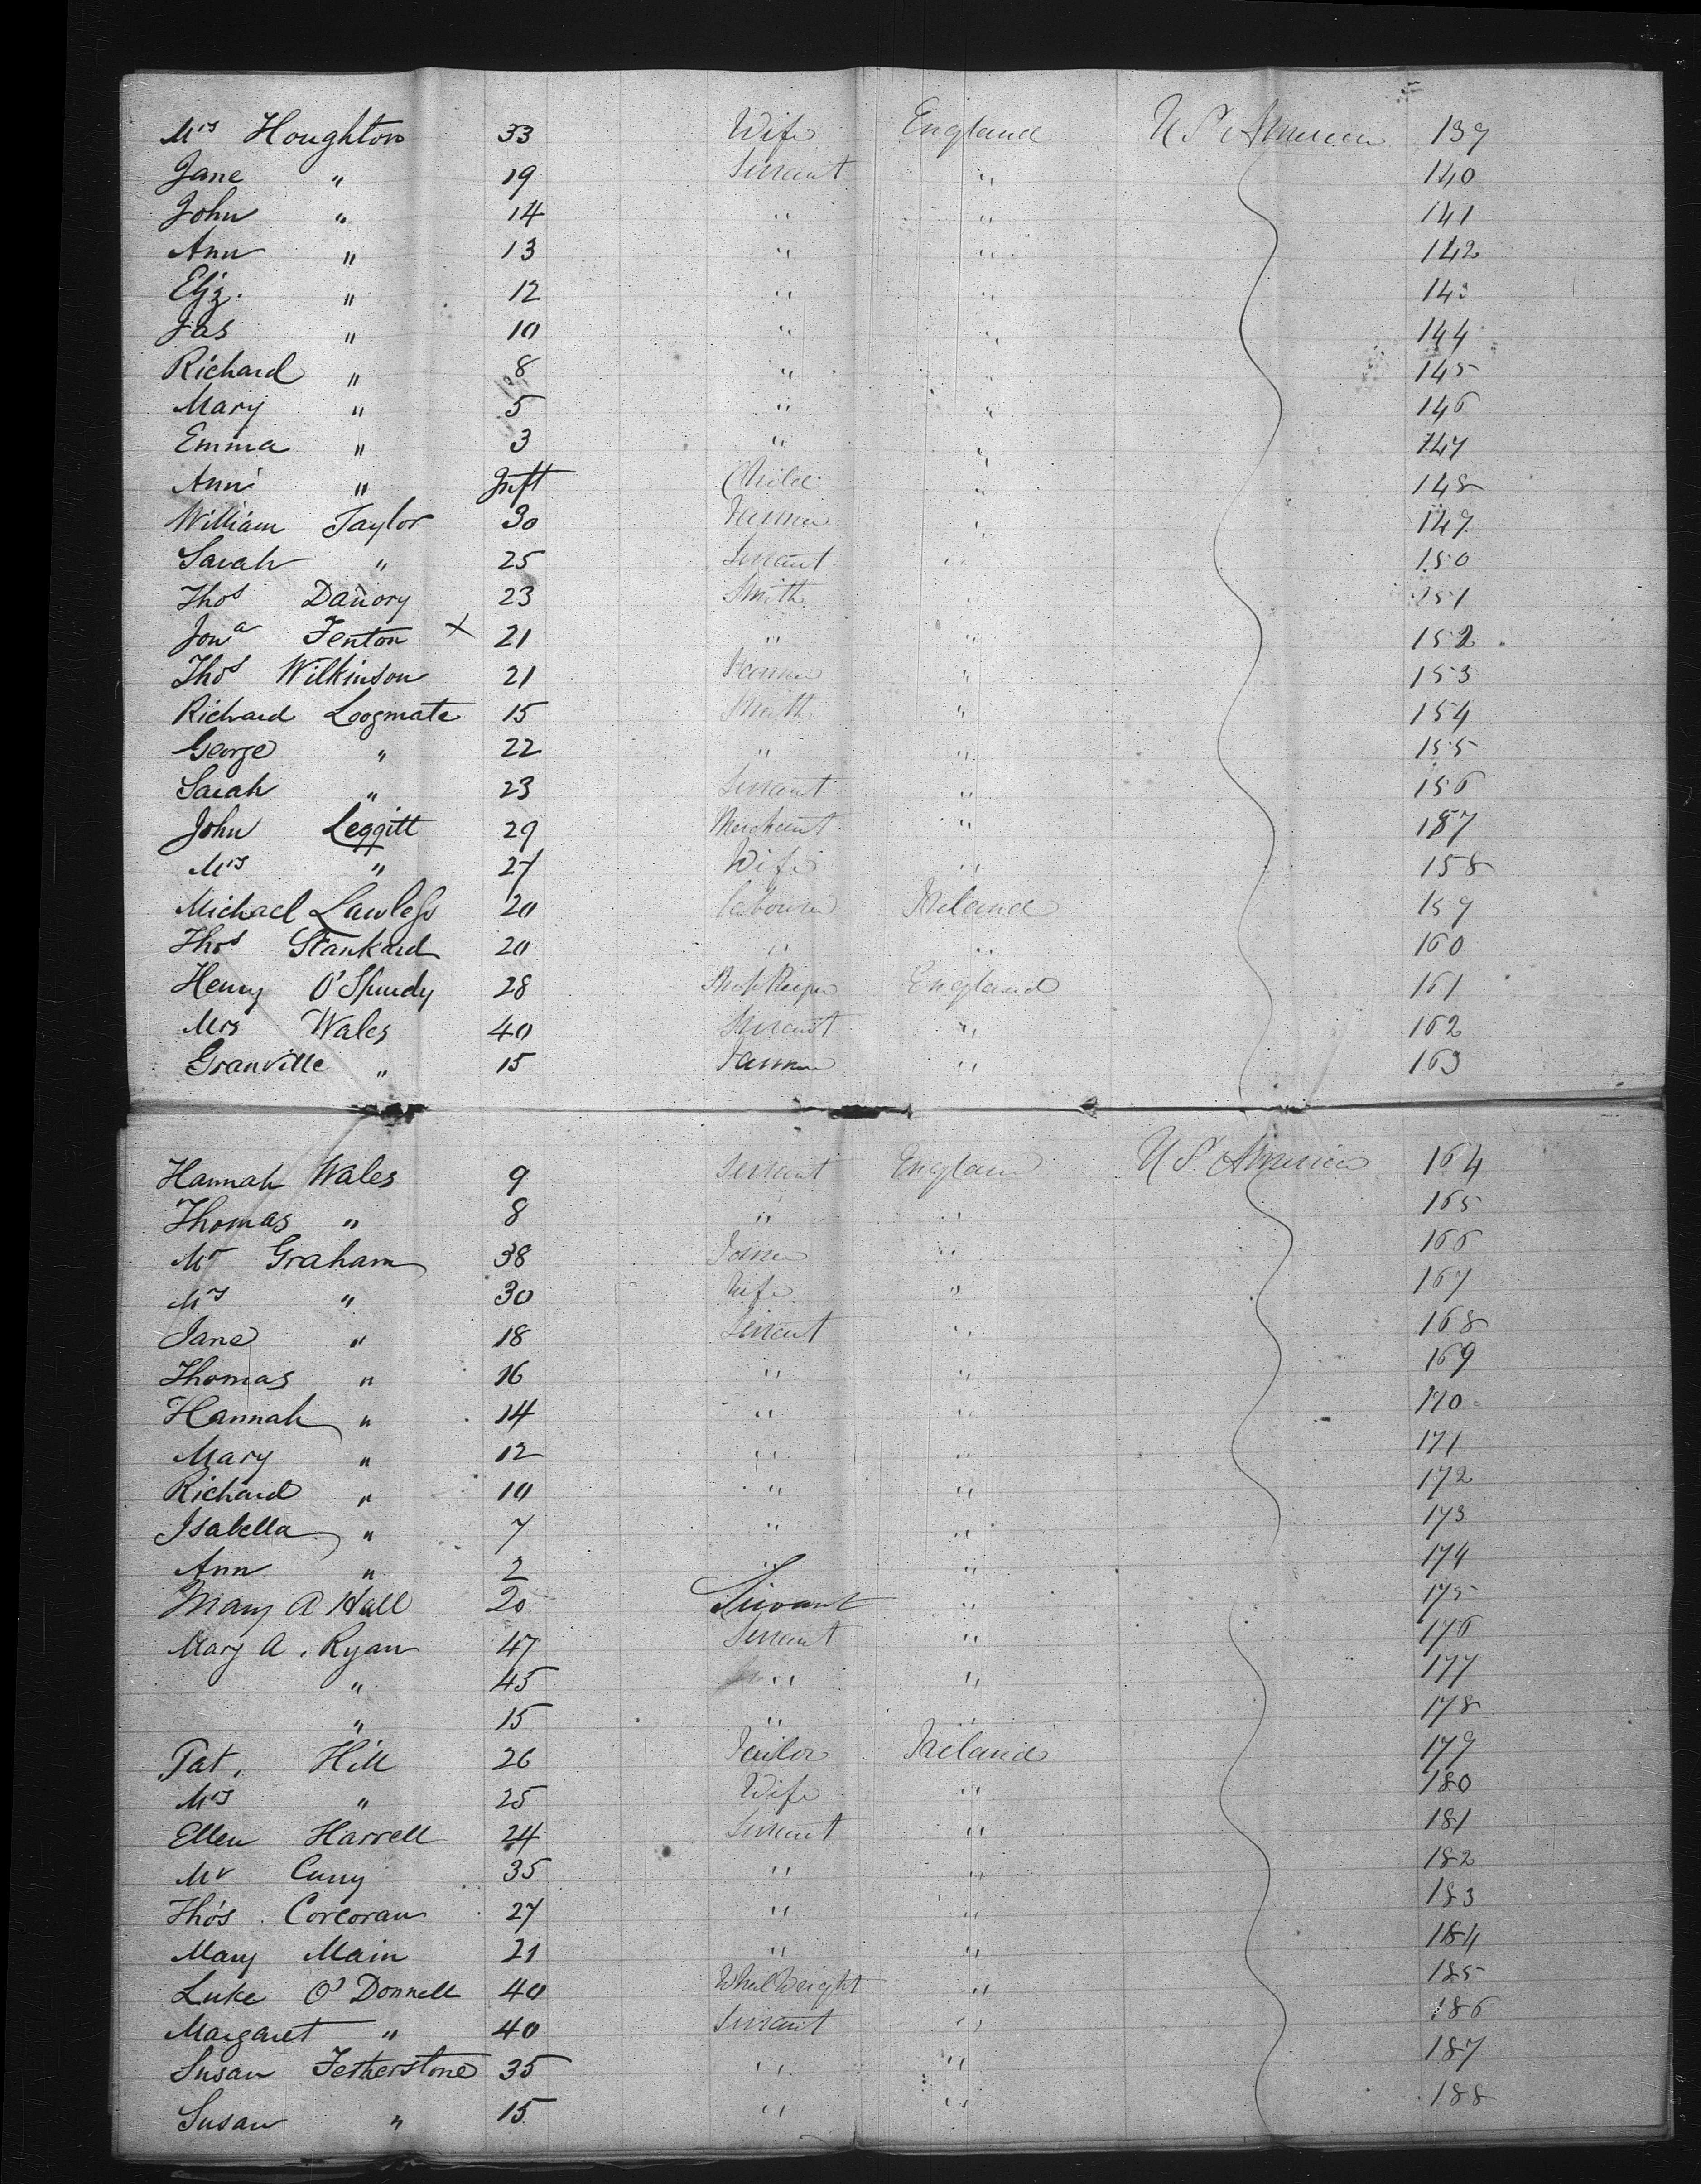 Mrs Houghton 33 Wife England U S America 139
Jane " 19 Servant " 140
John " 14 " " 141
Ann " 13 " " 142
Eliz. " 12 " " 143
Jas " 10 " " 144
Richard " 8 " " 145
Mary " 5 " " 146
Emma " 3 " " 147
Ann " Inft Child " 148
William Taylor 30 Farmer " 149
Sarah " 25 Servant " 150
Thos 23 Smith " 151
Jona Fenton X 21 " " 152
Thos Wilkinson 21 Farmer " 153
Richard Loogmate 15 Smith " 154
George " 22 " " 155
Sarah " 23 Servant " 156
John Leggitt 29 Merchant " 157
Mrs " 27 Wife " 158
Michael Lawless 20 Labourer Ireland 159
Thos Stankard 20 " " 160
Henry 28 ShopKeeper England 161
Mrs Wales 40 Servant " 162
Granville " 15 Farmer " 163
Hannah Wales 9 Servant England U S America 164
Thomas " 8 " " 165
Mr Graham 38 " 166
Mrs " 30 Wife " 167
Jane " 18 Servant " 168
Thomas " 16 " " 169
Hannah " 14 " " 170
Mary " 12 " " 171
Richard " 10 " " 172
Isabella " 7 " " 173
Ann " 2 " " 174
Mary A Hall 20 Servant " 175
Mary A. Ryan 47 Servant " 176
" 45 " " 177
" 15 " " 178
Pat. Hill 26 Tailor Ireland 179
Mrs " 25 Wife " 180
Ellen Harrell 24 Servant " 181
Mr Curry 35 " " 182
Thos. Corcoran 27 " " 183
Mary Main 21 " " 184
Luke O'Donnell 40 WheelWright " 185
Margaret " 40 Servant " 186
Susan Fetherstone 35 " " 187
Susan " 15 " " 188